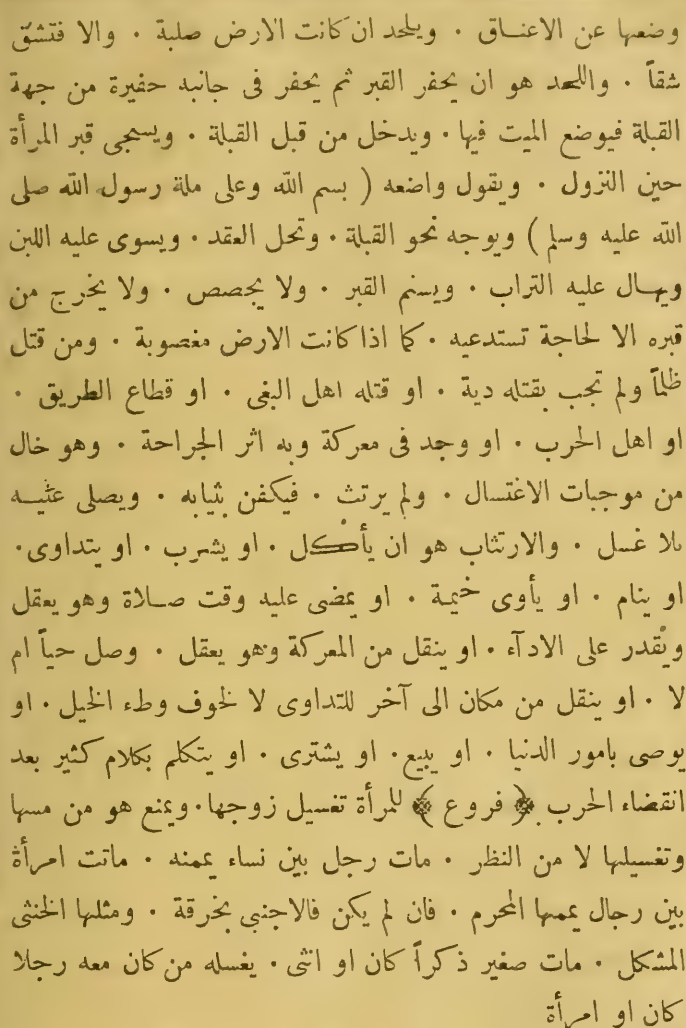 وضعها عن الاعنـاق . ويلحد ان كانت الارض صلبة . والا فتشق
شقاً . واللحد هو ان يحفر القبر ثم يحفر فى جانبه حفيرة من جهة
القبلة فيوضع الميت فيها . ويدخل من قبل القبلة . ويسجى قبر المرأة
حين النزول . ويقول واضعه ( بسم الله وعلى ملة رسول الله صلى
الله عليه وسلم ) ويوجه نحو القبلة . وتحل العقد . ويسوى عليه اللبن
ويهـال عليه التراب . ويسنم القبر . ولا يجصص . ولا يخرج من
قبره الا لحاجة تستدعيه . كما اذا كانت الارض مغصوبة . ومن قتل
ظلماً ولم تجب بقتله دية . او قتله اهل البغى . او قطاع الطريق .
او اهل الحرب . او وجد فى معركة وبه اثر الجراحة . وهو خال
من موجبات الاغتسال . ولم يرتث . فيكفن بثيابه . ويصلى عليـه
بلا غسل . والارتثاب هو ان يأكل . او يشرب . او يتداوى .
او ينام . او يأوى خيمة . او يمضى عليه وقت صـلاة وهو يعقل
ويقدر على الادآء . او ينقل من المعركة وهو يعقل . وصل حياً ام
لا . او ينقل من مكان الى آخر للتداوى لا لخوف وطء الخيل . او
يوصى بامور الدنيا . او يبيع . او يشترى . او يتكلم بكلام كثير بعد
انقضاء الحرب ﴿ فروع ﴾ للمرأة تغسيل زوجها . ويمنع هو من مسها
وتغسيلها لا من النظر . مات رجل بين نساء يممنه . ماتت امرأة
بين رجال يممها المحرم . فان لم يكن فالاجنبى بخرقة . ومثلها الخنثى
المشكل . مات صغير ذكراً كان او انثى . يغسله من كان معه رجلا
كان او امرأة